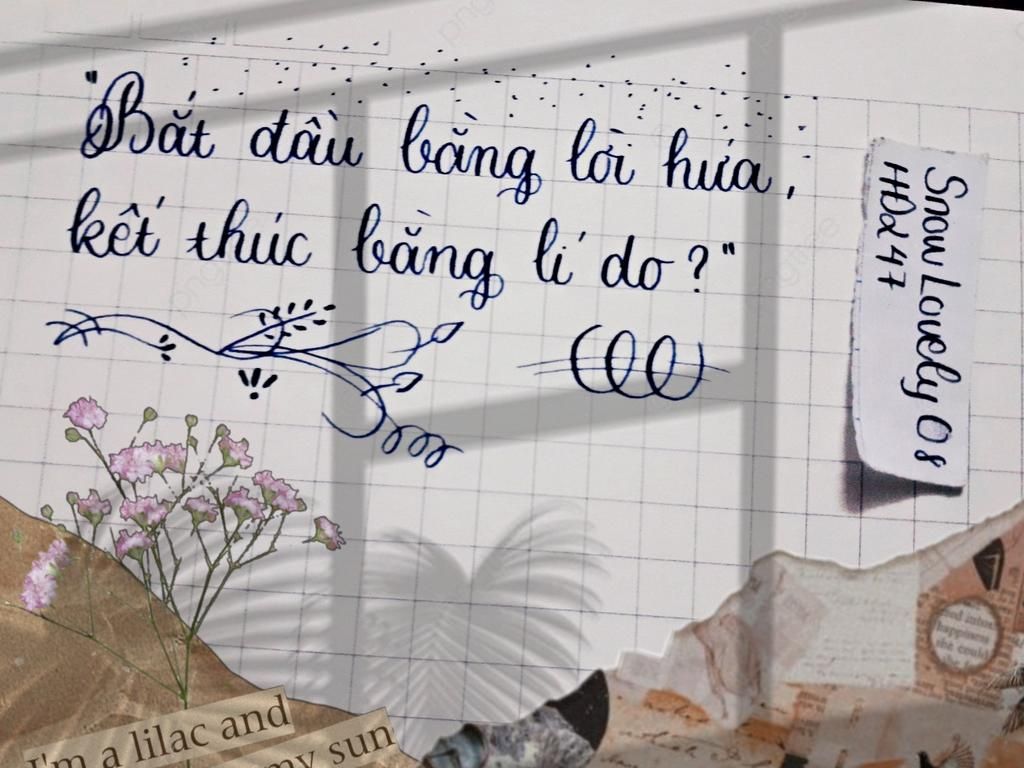 "Bắt đầu bằng lời hứa,
kết thúc bằng lí do?"
Snow Lovely 08
HĐ 247
I'm a lilac and
my sun
happiness
she could